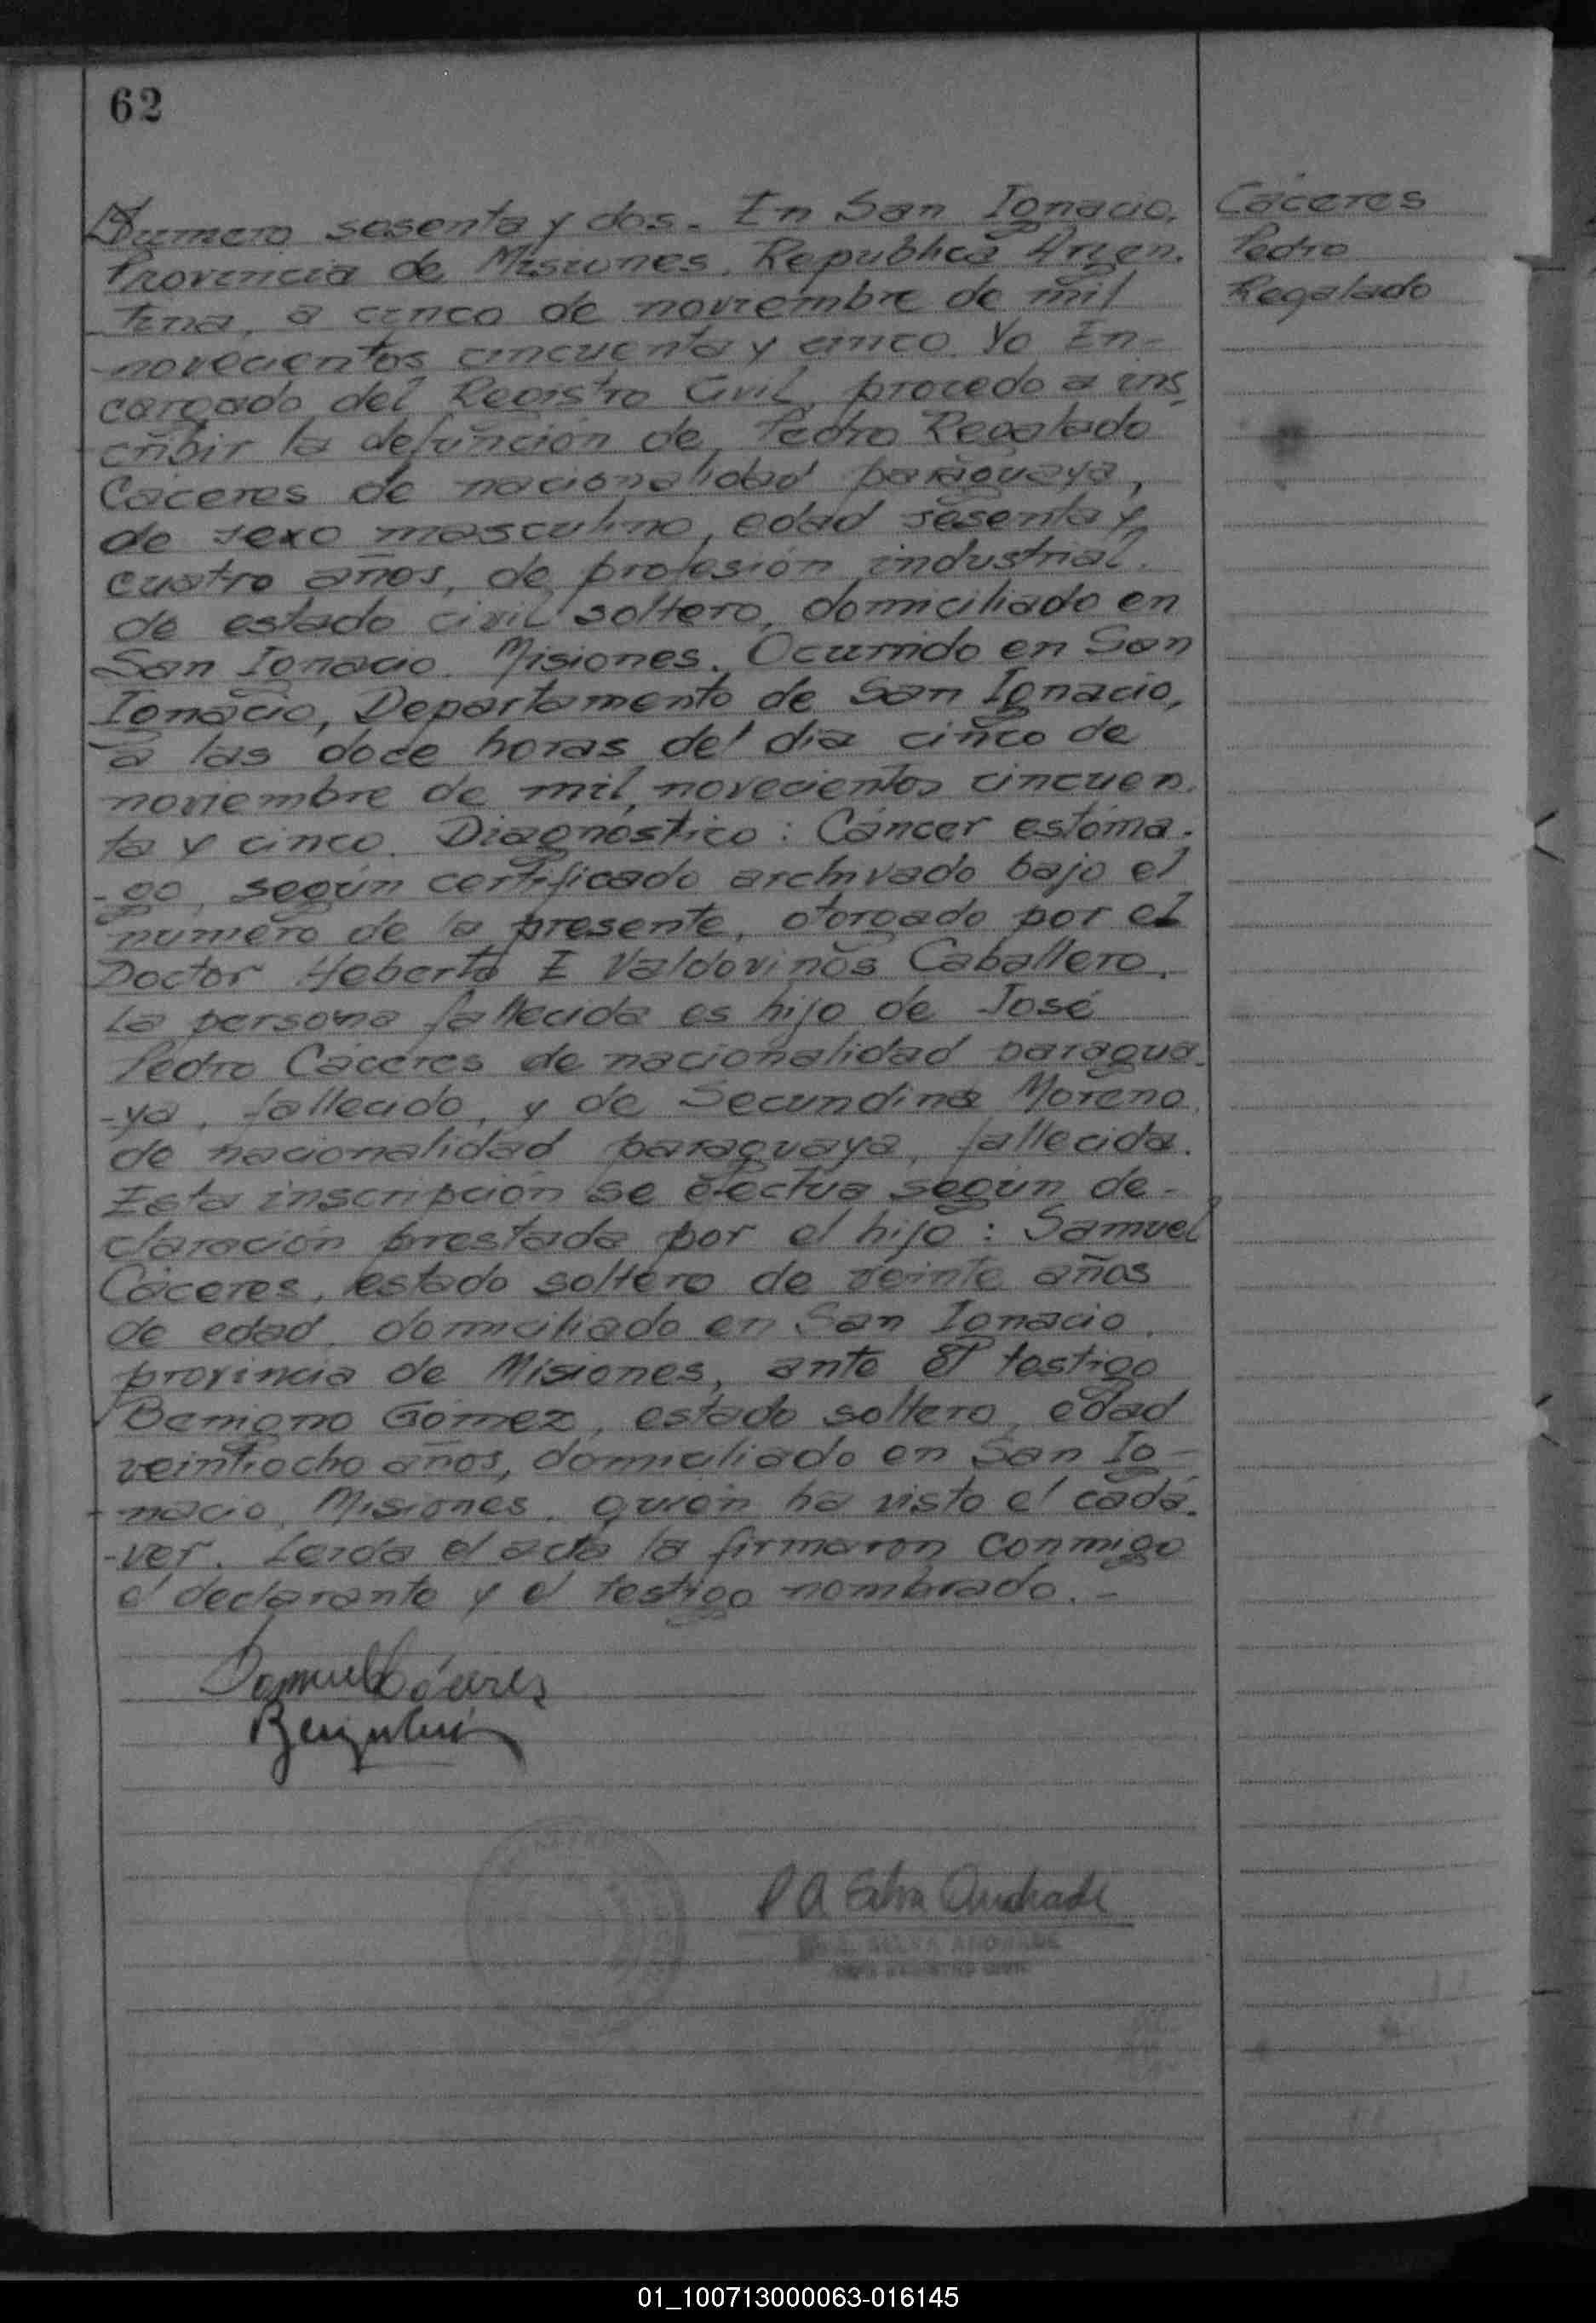 62
Numero sesenta y dos. En San Ignacio,
Provincia de Misiones, Republica Argen-
tina, a cinco de noviembre de mil
novecientos cincuenta y cinco. Yo En-
cargado del Registro Civil, procedo a ins-
cribir la defunción de Pedro Regalado
Cáceres de nacionalidad paraguaya,
de sexo masculino, edad sesenta y
cuatro años, de profesión industrial.
de estado civil soltero, domiciliado en
San Ignacio. Misiones. Ocurrido en San
Ignacio, Departamento de San Ignacio,
a las doce horas del dia cinco de
noviembre de mil novecientos cincuen-
ta y cinco. Diagnóstico: Cáncer estóma-
-go, según certificado archivado bajo el
numero de la presente, otorgado por el
Doctor Heberto E Valdovinos Caballero.
La persona fallecida es hijo de José
Pedro Cáceres de nacionalidad paragua-
-ya, fallecido, y de Secundina Moreno,
de nacionalidad paraguaya, fallecida.
Esta inscripción se efectua según de-
claración prestada por el hijo: Samuel
Cáceres, estado soltero de veinte años
de edad, domiciliado en San Ignacio,
provincia de Misiones, ante el testigo
Benigno Gómez, estado soltero, edad
veintiocho años, domiciliado en San Ig-
-nacio, Misiones, quien ha visto el cadá-
-ver. Leida el acta la firmaron conmigo
el declarante y el testigo nombrado.-
Samuel Cáceres
P A Silva Andrade
SILVA ANDRADE
REGISTRO CIVIL
Cáceres
Pedro
Regalado
01_100713000063-016145